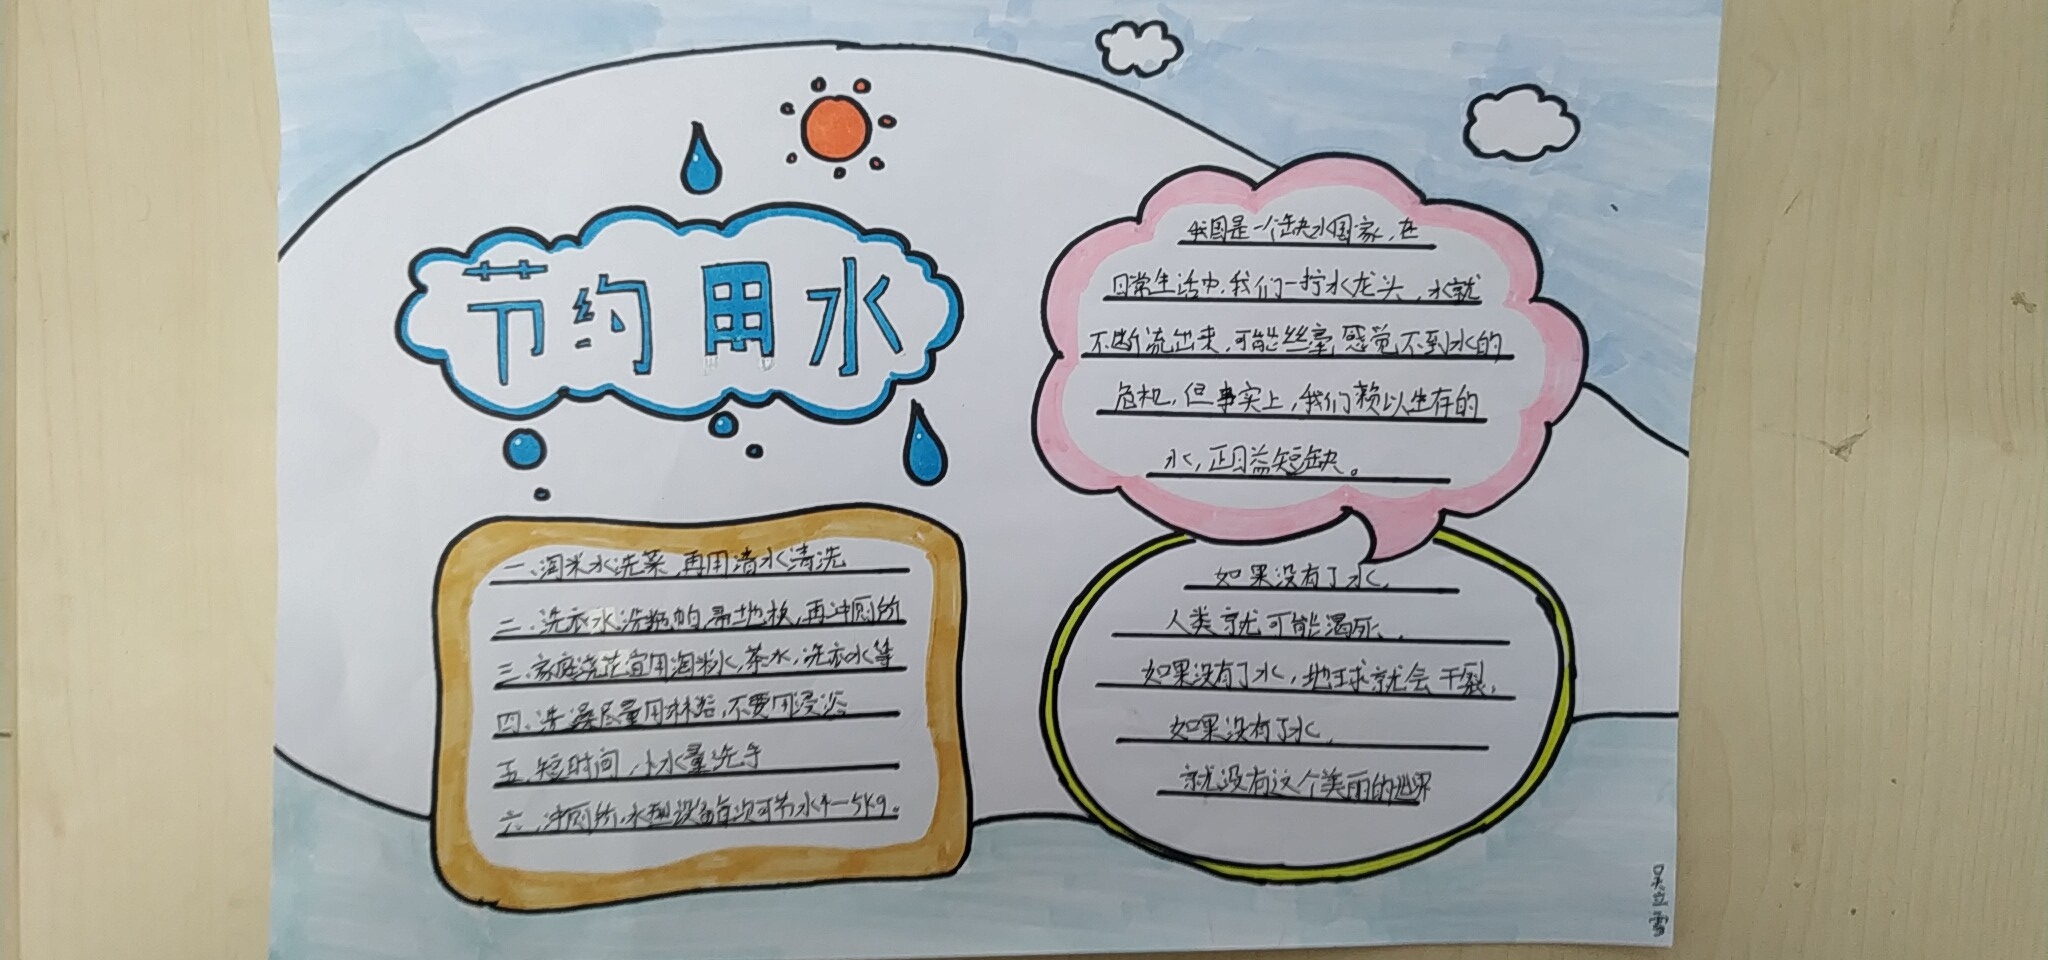 节约用水
我国是一个缺水国家,在
日常生活中,我们一拧水龙头,水就
不断流出来,可能丝毫感觉不到水的
危机,但事实上,我们赖以生存的
水,正日益短缺。
一、淘米水洗菜,再用清水清洗
二、洗衣水洗拖帕,帚地板,再冲厕所
三、家庭浇花宜用淘米水,茶水,洗衣水等
四、洗澡尽量用淋浴,不要用浸浴
五、短时间,小水量洗手
六、冲厕所,水型设备每次可节水4—5kg。
如果没有了水,
人类就可能渴死,
如果没有了水,地球就会干裂,
如果没有了水,
就没有这个美丽的世界
吴立雪